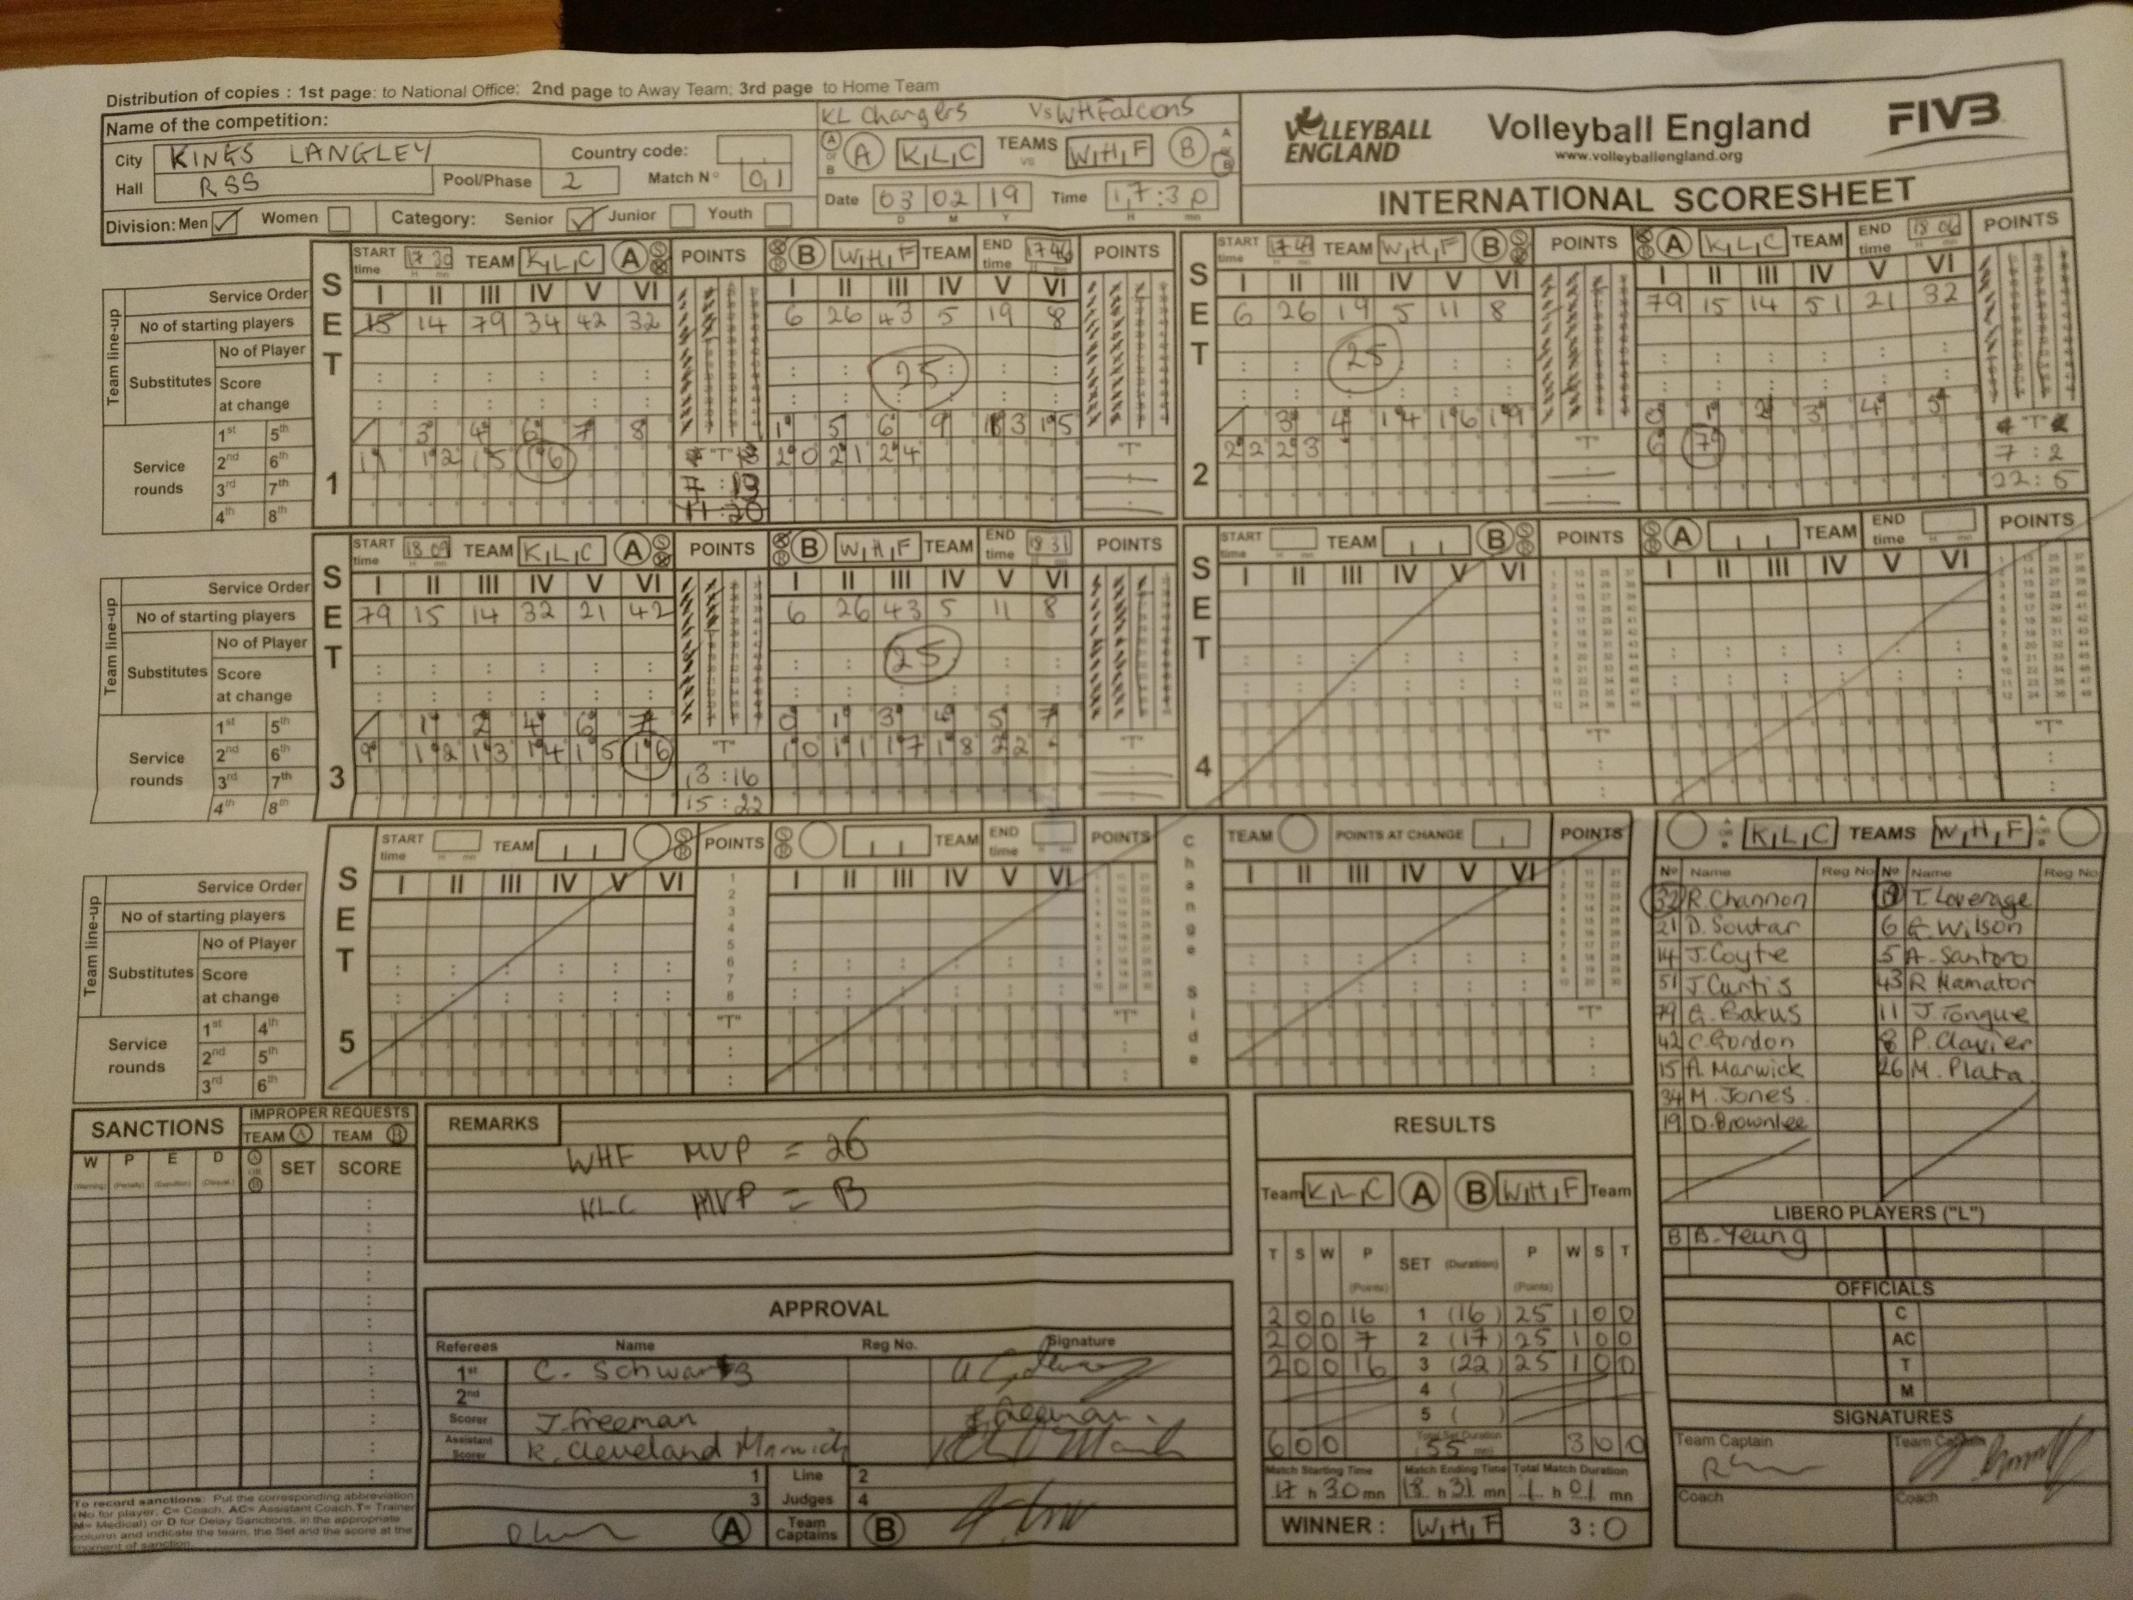 Distribution of copies : 1st page: to National Office; 2nd page to Away Team; 3rd page to Home Team
Name of the competition:
KL Chargers Vs WH Falcons
City KINGS LANGLEY Country code:
Hall RSS Pool/Phase 2 Match N° 0,1
A or B A K,L,C TEAMS vs W,H,F B A or B
Date 03 02 19 Time 17:30
D M Y H mn
Division: Men Women Category: Senior Junior Youth
VOLLEYBALL ENGLAND
Volleyball England
www.volleyballengland.org
FIVB
INTERNATIONAL SCORESHEET
SET 1
START time 17 30 TEAM K,L,C A S R POINTS S R B W,H,F TEAM END time 17 46 POINTS
Team line-up
Service Order I II III IV V VI I II III IV V VI
No of starting players 15 14 79 34 42 32 6 26 43 5 19 8
Substitutes No of Player
Score at change
25
Service rounds
1st 5th 3 4 6 7 8 1 5 6 9 13 15
2nd 6th 11 12 15 16 "T" 20 21 24 "T"
3rd 7th 7 : 13
4th 8th 11 : 20
SET 2
START time 17 49 TEAM W,H,F B S R POINTS S R A K,L,C TEAM END time 18 06 POINTS
I II III IV V VI I II III IV V VI
6 26 19 5 11 8 79 15 14 51 21 32
25
3 4 14 16 19 0 1 2 3 4 5
22 23 "T" 6 7 "T"
7 : 2
22 : 5
SET 3
START time 18 09 TEAM K,L,C A S R POINTS S R B W,H,F TEAM END time 18 31 POINTS
Team line-up
Service Order I II III IV V VI I II III IV V VI
No of starting players 79 15 14 32 21 42 6 26 43 5 11 8
Substitutes No of Player
Score at change
25
Service rounds
1st 5th 1 2 4 6 7 0 1 3 4 5 7
2nd 6th 9 12 13 14 15 16 "T" 10 11 17 18 22 "T"
3rd 7th 13 : 16
4th 8th 15 : 22
SET 4
START time TEAM B S R POINTS S R A TEAM END time POINTS
I II III IV V VI I II III IV V VI
"T" "T"
SET 5
START time TEAM S R POINTS S R TEAM END time POINTS
Change Side
TEAM POINTS AT CHANGE POINTS
Team line-up
Service Order I II III IV V VI I II III IV V VI I II III IV V VI
No of starting players
Substitutes No of Player
Score at change
1 2 3 4 5 6 7 8
Service rounds
1st 4th "T" "T" "T"
2nd 5th
3rd 6th
K,L,C TEAMS W,H,F
N° Name Reg No N° Name Reg No
32 R. Channon 19 T. Loverage
21 D. Soutar 6 G. Wilson
14 J. Coyte 5 A. Santoro
51 J. Curtis 43 R Mamator
79 G. Bakus 11 J. Tongue
42 C. Gordon 8 P. Clavier
15 A. Marwick 26 M. Plata.
34 M. Jones.
19 D. Brownlee
LIBERO PLAYERS ("L")
B B. Yeung
OFFICIALS
C
AC
T
M
SIGNATURES
Team Captain Team Captain
Coach Coach
SANCTIONS
IMPROPER REQUESTS
TEAM A TEAM B
W P E D A or B SET SCORE
(Warning) (Penalty) (Expulsion) (Disqual.)
To record sanctions: Put the corresponding abbreviation
(No for player, C= Coach, AC= Assistant Coach, T= Trainer
M= Medical) or D for Delay Sanctions, in the appropriate
column and indicate the team, the Set and the score at the
moment of sanction.
REMARKS
WHF MVP = 26
KLC MVP = B
APPROVAL
Referees Name Reg No. Signature
1st C. Schwartz
2nd
Scorer J. Freeman J. Freeman.
Assistant Scorer K. Cleveland Marwick
1 Line 2
3 Judges 4
A Team Captains B
RESULTS
Team K,L,C A B W,H,F Team
T S W P SET (Duration) P W S T
(Points) (Points)
2 0 0 16 1 (16) 25 1 0 0
2 0 0 7 2 (17) 25 1 0 0
2 0 0 16 3 (22) 25 1 0 0
4 ( )
5 ( )
6 0 0 Total Set Duration (55 mn) 3 0 0
Match Starting Time Match Ending Time Total Match Duration
17 h 30 mn 18 h 31 mn 1 h 01 mn
WINNER : W,H,F 3:0